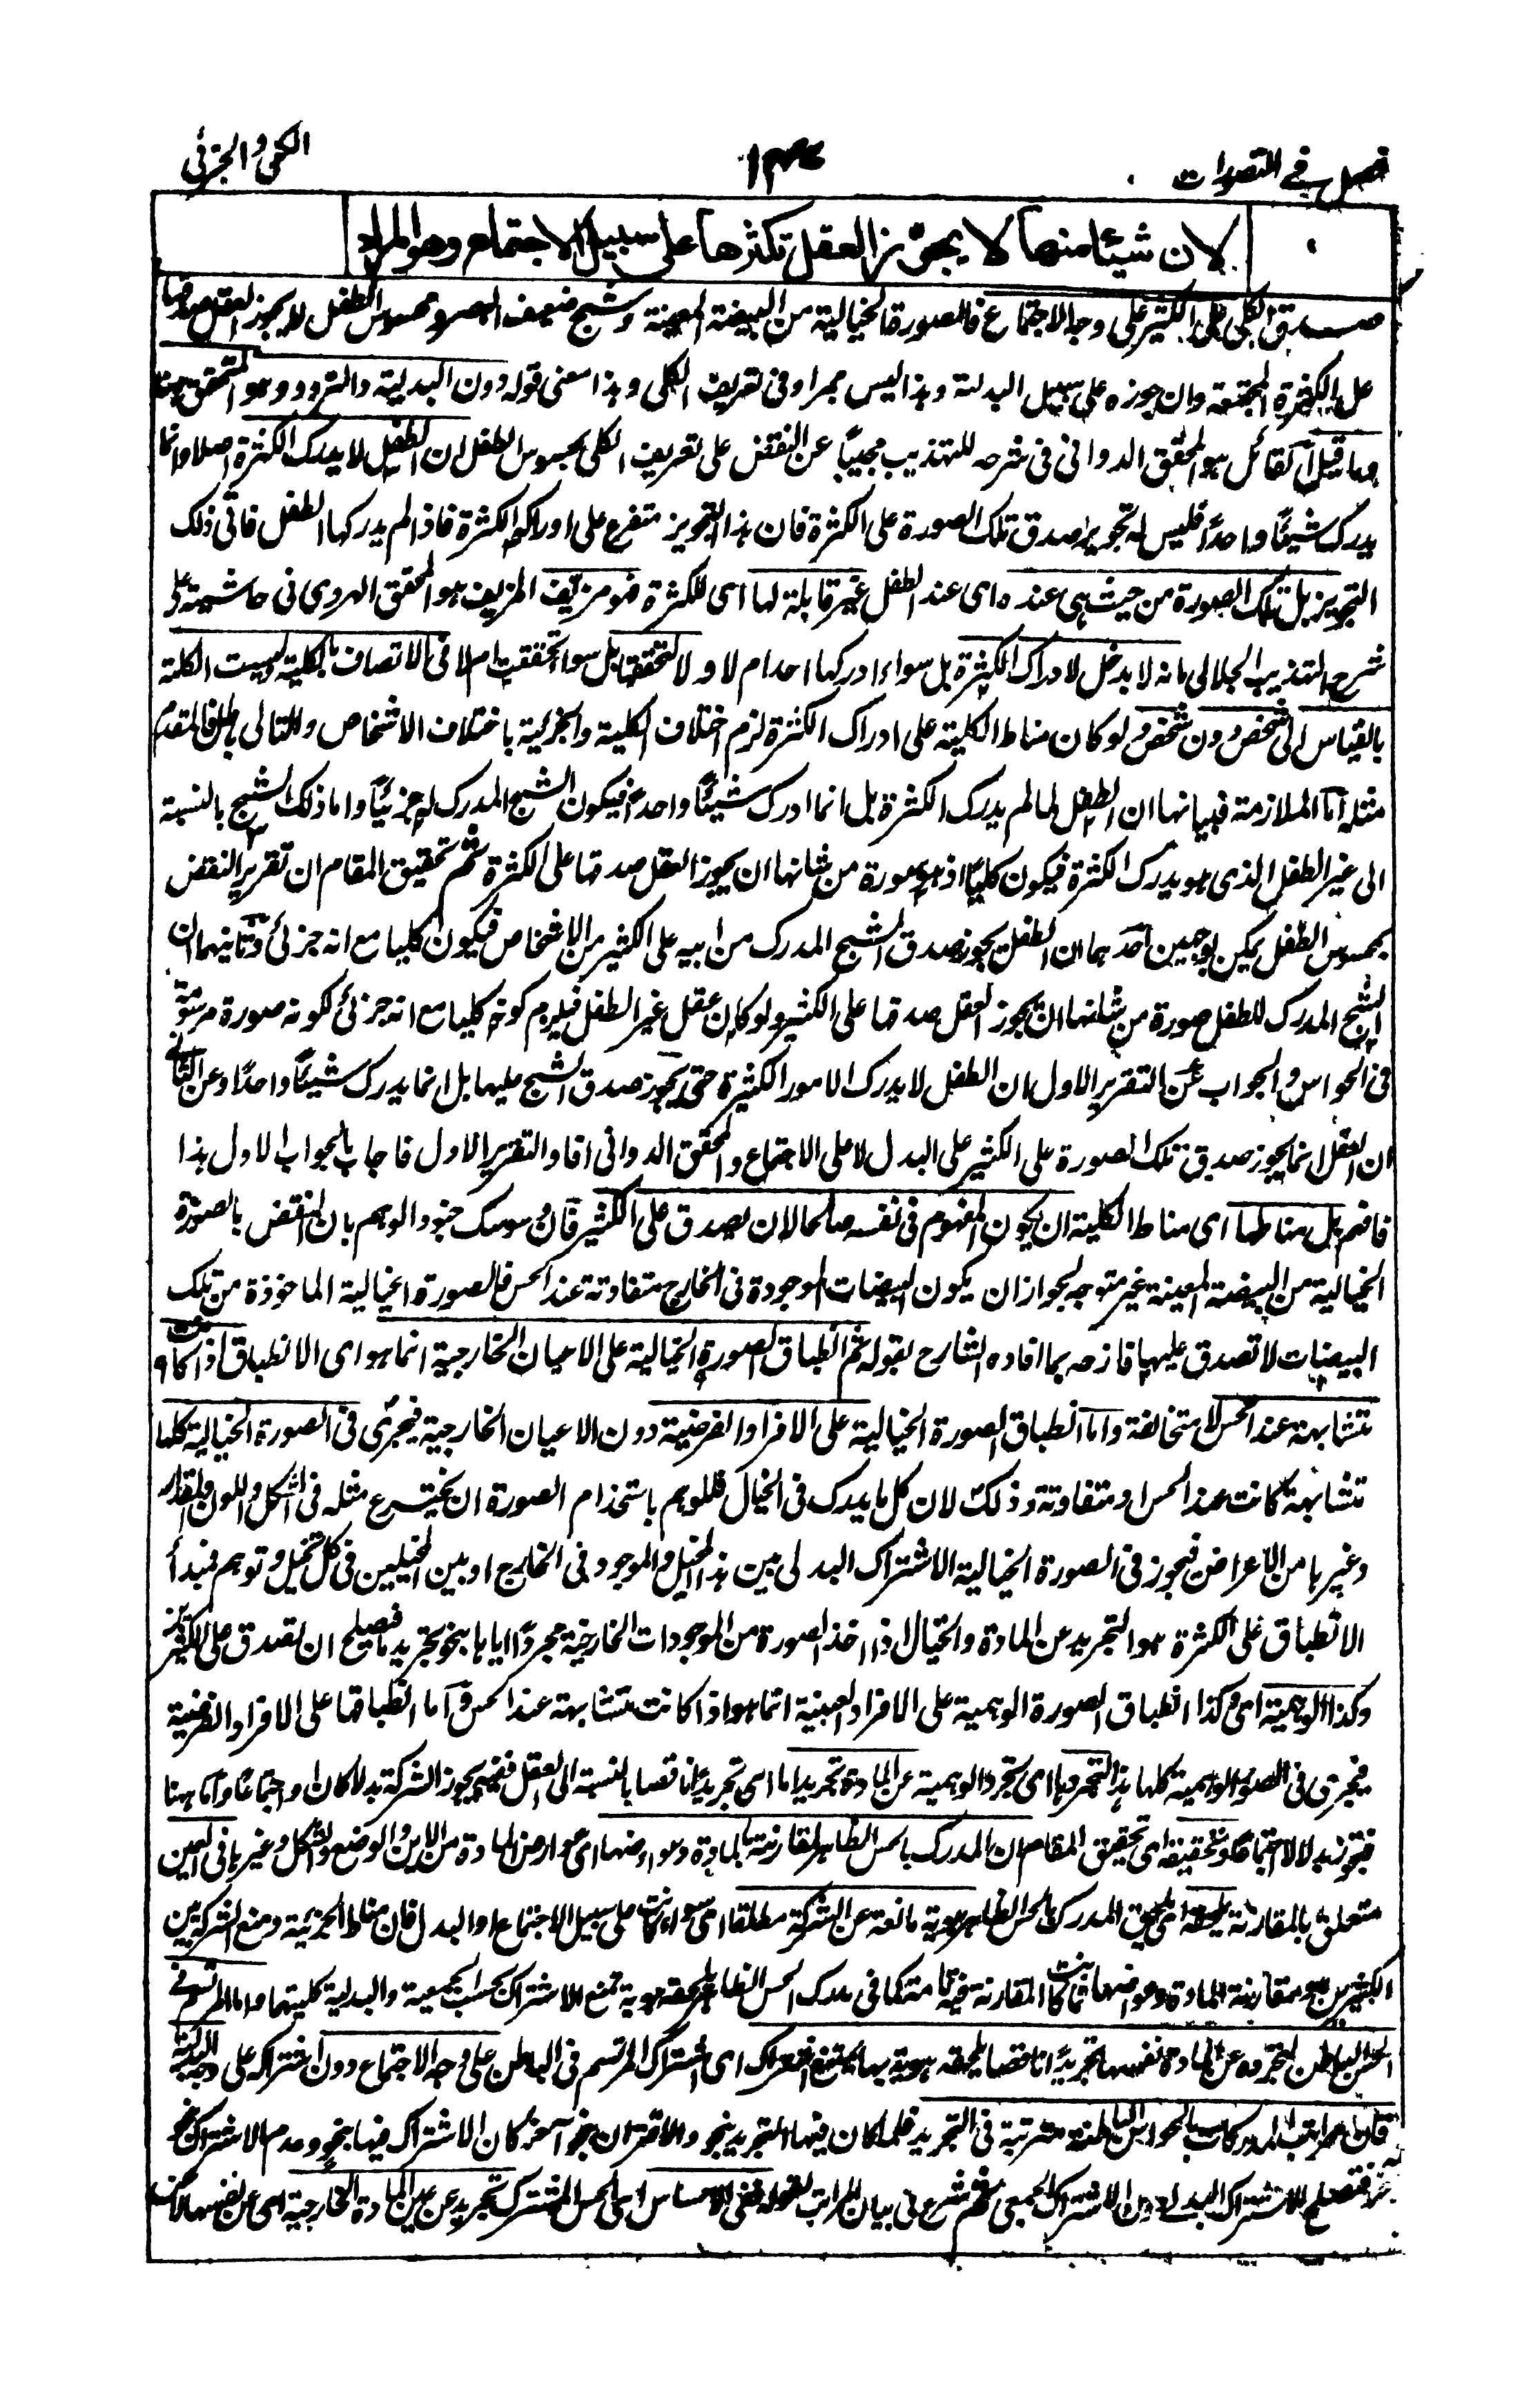 فصل في التصورات
الكلي والجزئي
لان شيئا منها لا يجوّز العقل تكثرها على سبيل الاجتماع وهو المراد
صدق الكلي على الكثير على وجه الاجتماع فالصورة الخيالية من البيضة المعينة وشبح ضعيف البصر ومحسوس الطفل لا يجوز العقل صدقها
على الكثرة المجتمعة وان جوزه على سبيل البدلية وهذا ليس بمراد في تعريف الكلي وهذا معنى قوله دون البدلية والتردد وهو المتحقق ههنا
وما قيل القائل هو المحقق الدواني في شرحه للتهذيب مجيبًا عن النقض على تعريف الكلي بمحسوس الطفل ان الطفل لا يدرك الكثرة اصلا وانما
يدرك شيئًا واحدًا فليس له تجويز صدق تلك الصورة على الكثرة فان هذا التجويز متفرع على ادراك الكثرة فاذا لم يدركها الطفل فانى ذلك
التجويز بل تلك الصورة من حيث هي عنده اى عند الطفل غير قابلة لها اى للكثرة فهو مزيف المزيف هو المحقق الهروى في حاشيته على
شرح التهذيب الجلالي بانه لا يدخل لادراك الكثرة بل سواء ادركها احد ام لا ولا لتحققها بل سواء تحققت ام لا في الاتصاف بالكلية وليست الكلية
بالقياس الى شخص دون شخص ولو كان مناط الكلية على ادراك الكثرة لزم اختلاف الكلية والجزئية باختلاف الاشخاص والتالى باطل فالمقدم
مثله اما الملازمة فبيانها ان الطفل لما لم يدرك الكثرة بل انما ادرك شيئًا واحدًا فيكون الشبح المدرك له جزئيًا واما ذلك الشبح بالنسبة
الى غير الطفل الذى هو يدرك الكثرة فيكون كليًا اذ هو صورة من شانها ان يجوز العقل صدقها على الكثرة ثم تحقيق المقام ان تقرير النقض
بمحسوس الطفل يمكن بوجهين احدهما ان الطفل يجوز صدق الشبح المدرك من ابيه على الكثير من الاشخاص فيكون كليا مع انه جزئي وثانيهما ان
الشبح المدرك للطفل صورة من شانها ان يجوز العقل صدقها على الكثير ولو كان عقل غير الطفل فيلزم كونه كليا مع انه جزئي لكونه صورة مرسومة
في الحواس والجواب عن التقرير الاول ان الطفل لا يدرك الامور الكثيرة حتى يجوز صدق الشبح عليها بل انما يدرك شيئًا واحدًا وعن الثاني
ان العقل انما يجوز صدق تلك الصورة على الكثير على البدل لا على الاجتماع والمحقق الدوانى افاد التقرير الاول فاجاب بالجواب الاول هذا
فافهم بل مناطها اى مناط الكلية ان يكون المفهوم في نفسه صالحا لان يصدق على الكثير فان وسوسك جنود الوهم بان النقض بالصورة
الخيالية من البيضة المعينة غير متوجه لجواز ان يكون البيضات الموجودة في الخارج متفاوتة عند الحس فالصورة الخيالية الماخوذة من تلك
البيضات لا تصدق عليها فازحه بما افاده الشارح بقوله ثم انطباق الصورة الخيالية على الاعيان الخارجية انما هو اى الانطباق اذا كانت
متشابهة عند الحس لا متخالفة واما انطباق الصورة الخيالية على الافراد الفرضية دون الاعيان الخارجية فيجرى في الصورة الخيالية كلها
متشابهة كانت عند الحس او متفاوتة وذلك لان كل ما يدرك في الخيال فللوهم باستخدام الصورة ان يخترع مثله في الشكل واللون والمقدار
وغيرها من الاعراض فيجوز في الصورة الخيالية الاشتراك البدلى بين هذا المخيل والموجود في الخارج او بين المخيلين في كل تخيل وتوهم فمبدأ
الانطباق على الكثرة هو التجريد عن المادة والخيال اذا اخذ الصورة من الموجودات الخارجية مجردًا اياها بنحو تجريد ما فيصلح ان تصدق على الكثير
وكذا الوهمية اى وكذا انطباق الصورة الوهمية على الافراد العينية انما هو اذا كانت متشابهة عند الحس واما انطباقها على الافراد الفرضية
فيجرى في الصور الوهمية كلها هذا لتجردها اى تجرد الوهمية عن المادة تجريدا ما اى تجريدا ناقصا بالنسبة الى العقل ففيه يجوز الشركة بدلا كان او اجتماعا واما ههنا
فتجوز بدلا لا اجتماعا وتحقيقه اى تحقيق المقام ان المدرك بالحس الظاهر لمقارنته بالمادة وعوارضها اى عوارض المادة من الاين والوضع والشكل وغيرها في العين
متعلق بالمقارنة يلحقه اى يلحق المدرك بالحس الظاهر هوية مانعة عن الشركة مطلقا اى سواء كانت على سبيل الاجتماع او البدل فان مناط الجزئية ومنع الشركة بين
الكثيرين هو مقارنة المادة وعوارضها فلما كانت المقارنة فيه تامة كما في مدرك الحس الظاهر يلحقه هوية تمنع الاشتراك بحسب الجمعية والبدلية كليتهما واما المرتسم في
الحس الباطن لتجرده عن المادة نفسها تجريدًا ناقصا يلحقه هوية بها يمتنع اشتراكه اى اشتراك المرتسم في الباطن على وجه الاجتماع دون اشتراكه على وجه البدلية
فان مراتب المدركات بالحواس الباطنة مترتبة في التجريد فلما كان فيها التجريد بنحو والاقتران بنحو آخر كان الاشتراك فيها بنحو وعدم الاشتراك بنحو
فتصلح للاشتراك البدلى دون الاشتراك الجمعى ثم شرع في بيان المراتب بقوله ففى الاحساس اى الحس المشترك تجريد عن عين المادة الخارجية اى عن نفسها